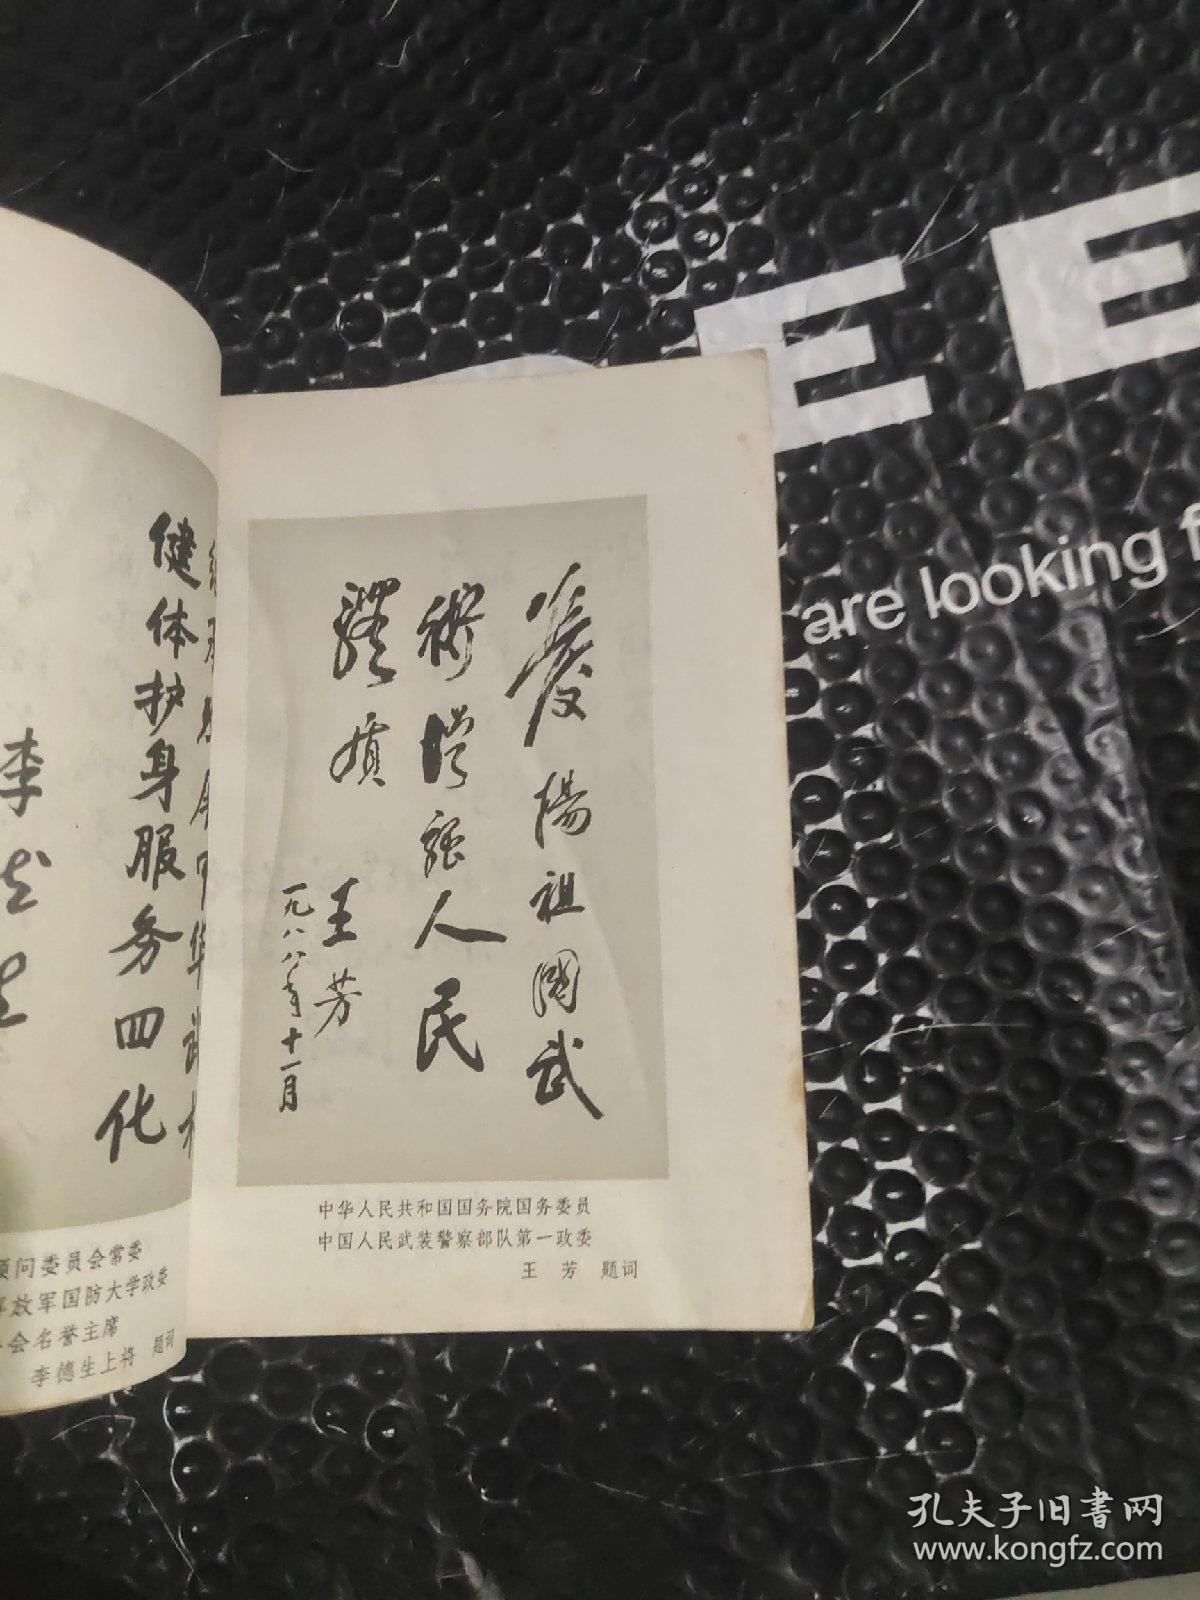 健体护身服务四化
李德生
顾问委员会常委
解放军国防大学政委
会名誉主席
李德生上将 题词
发揚祖國武
術增强人民
體质
王芳
一九八八年十一月
中华人民共和国国务院国务委员
中国人民武装警察部队第一政委
王 芳 题词
E E
are looking f
孔夫子旧書网
www.kongfz.com